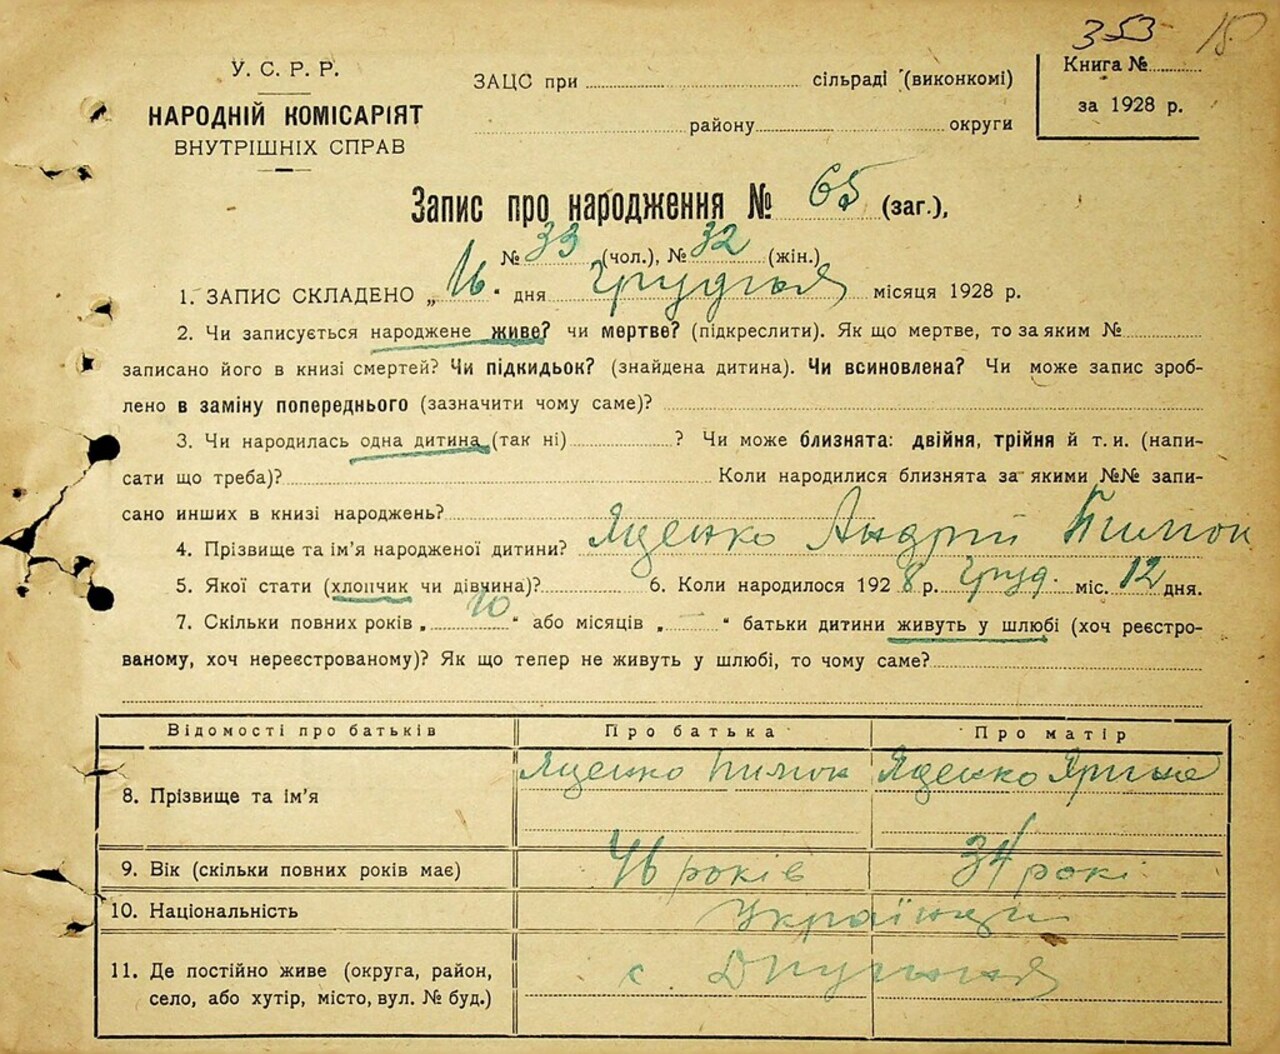 353 15
У. С. Р. Р.
НАРОДНІЙ КОМІСАРІЯТ
ВНУТРІШНІХ СПРАВ
ЗАЦС при сільраді (виконкомі)
району округи
Книга №
за 1928 р.
Запис про народження № 65 (заг.),
№ 33 (чол.), № 32 (жін.)
1. ЗАПИС СКЛАДЕНО „16" дня грудня місяця 1928 р.
2. Чи записується народжене живе? чи мертве? (підкреслити). Як що мертве, то за яким №
записано його в книзі смертей? Чи підкидьок? (знайдена дитина). Чи всиновлена? Чи може запис зроб-
лено в заміну попереднього (зазначити чому саме)?
3. Чи народилась одна дитина (так ні) ? Чи може близнята: двійня, трійня й т. и. (напи-
сати що треба)? Коли народилися близнята за якими №№ запи-
сано инших в книзі народжень?
4. Прізвище та ім'я народженої дитини? Яценко Андрій Пимон
5. Якої стати (хлопчик чи дівчина)? 6. Коли народилося 1928 р. груд. міс. 12 дня.
7. Скільки повних років „10" або місяців „—" батьки дитини живуть у шлюбі (хоч реєстро-
ваному, хоч нереєстрованому)? Як що тепер не живуть у шлюбі, то чому саме?
Відомості про батьків Про батька Про матір
8. Прізвище та ім'я Яценко Пимон Яценко Ярина
9. Вік (скільки повних років має) 46 років 34 рокі
10. Національність Українци
11. Де постійно живе (округа, район,
село, або хутір, місто, вул. № буд.) с